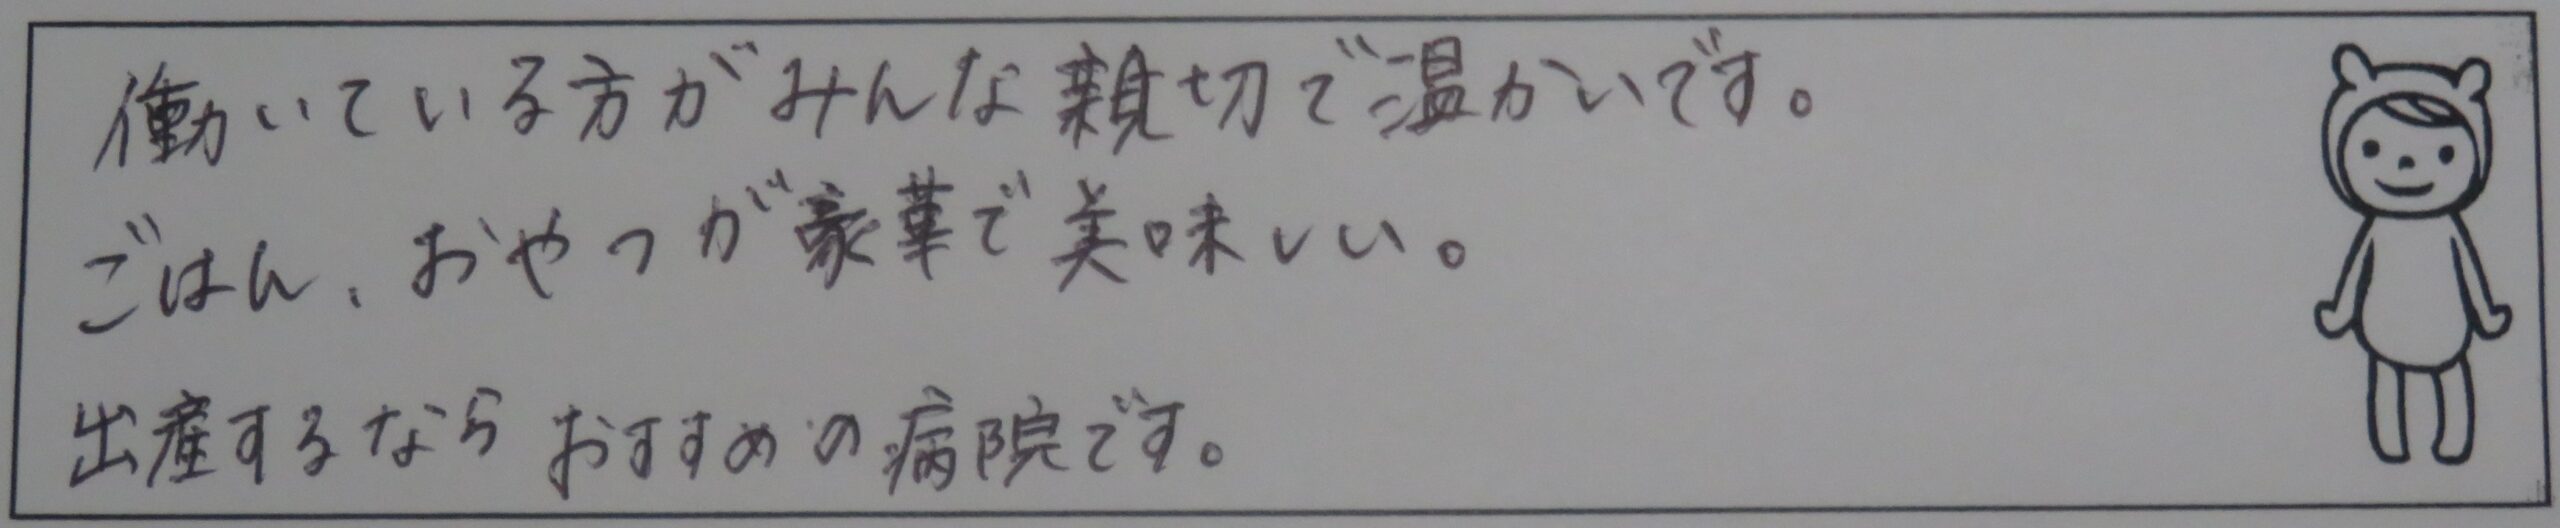 働いている方がみんな親切で温かいです。
ごはん、おやつが豪華で美味しい。
出産するならおすすめの病院です。